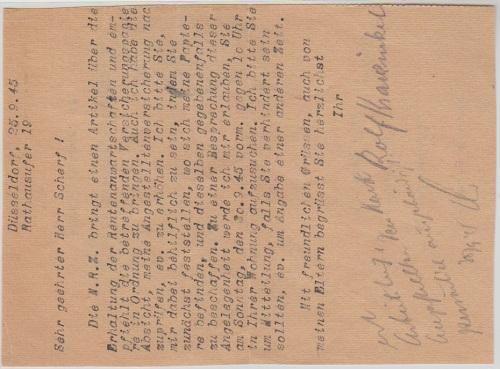 Düsseldorf, 25.9.45
Rathausufer 19
Sehr geehrter Herr Scherf !
Die N.R.Z. bringt einen Artikel über die
Erhaltung der Rentenanwartschaften und em-
pfiehlt die betreffenden Versicherungspapie
re in Ordnung zu bringen. Auch ich habe die
Absicht, meine Angestelltenversicherung nach
zuprüfen, ev. zu erhöhen. Ich bitte Sie,
mir dabei behilflich zu sein, indem Sie
zunächst feststellen, wo sich meine Papie-
re befinden, und dieselben gegebenenfalls
zu beschaffen. Zu einer Besprechung dieser
Angelegenheit werde ich mir erlauben, Sie
am Sonntag, den 30.9.45 vorm. gegen Uhr
in Ihrer Wohnung aufzusuchen. Ich bitte Sie
um Mitteilung, falls Sie verhindert sein
sollten, ev. um Angabe einer anderen Zeit.
Mit freundlichen Grüssen, auch von
meinen Eltern begrüsst Sie herzlichst
Ihr
Rolf